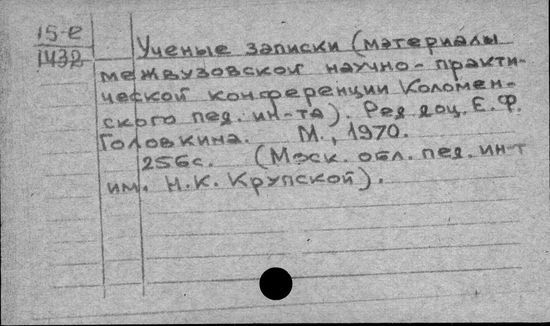 15-е
1432
Ученые записки (материалы
межвузовской научно-практи-
ческой конференции Коломен-
ского пед. ин-та). Ред доц. Е.Ф.
Головкина. М., 1970.
256с. (Моск. обл. пед. ин-т
им. Н.К. Крупской).